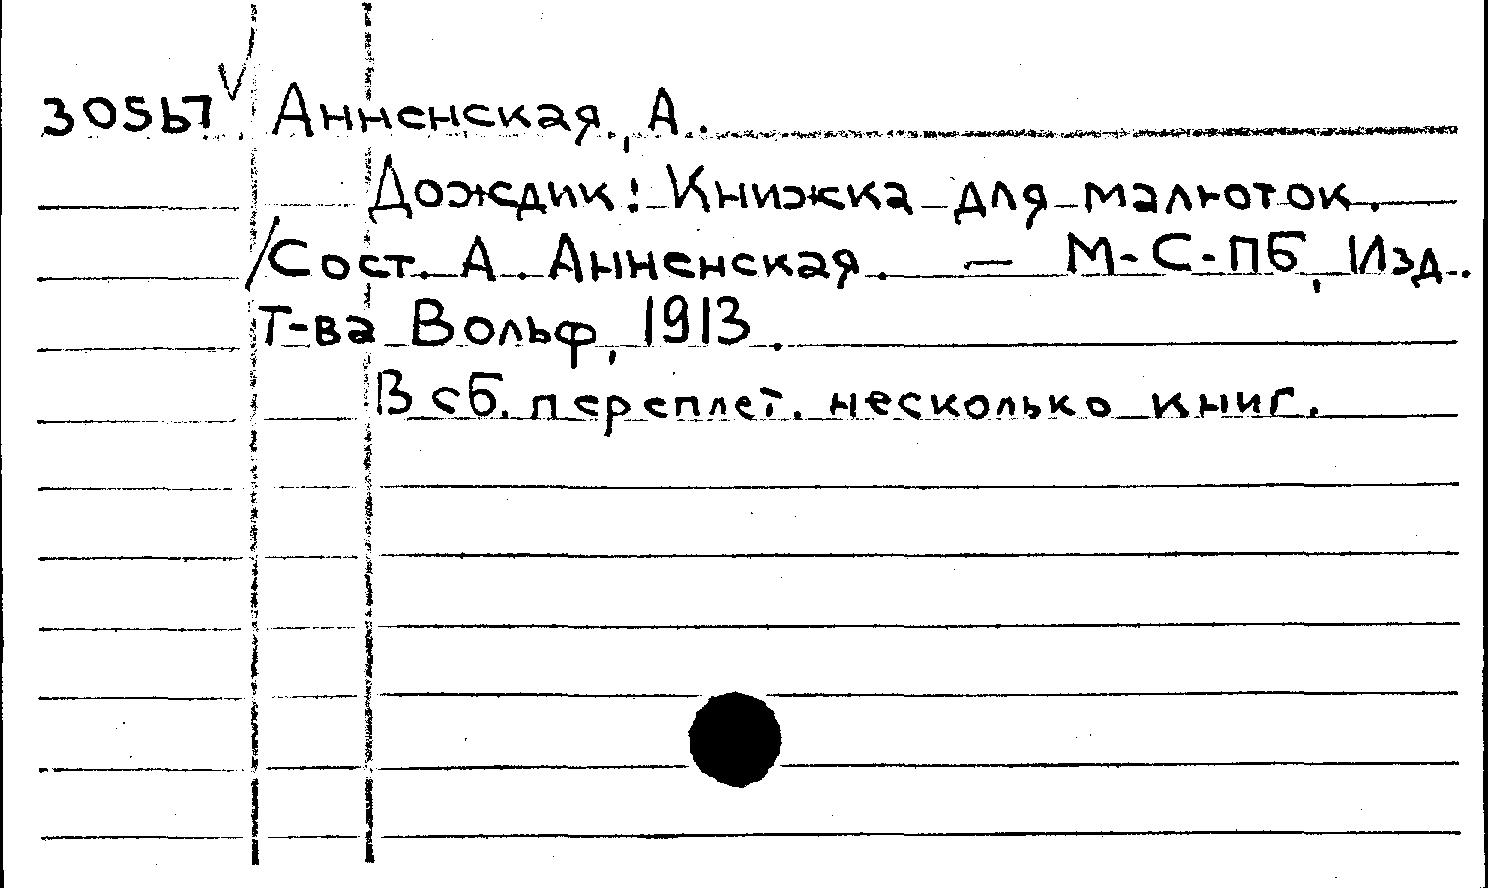 30567 Анненская, А.
Дождик: Книжка для малюток.
/Сост. А. Анненская. — М-С-ПБ, Изд.
Т-ва Вольф, 1913.
В сб. переплет. несколько книг.